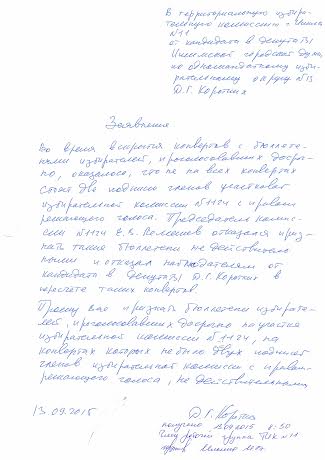 В территориальную избира-
тельную комиссию г. Ишима
№11
от кандидата в депутаты
Ишимской городской Думы
по одномандатному изби-
рательному округу №13
Д.Г. Коротких
Заявление
Во время вскрытия конвертов с бюллете-
нями избирателей, проголосовавших досроч-
но, оказалось, что не на всех конвертах
стоят две подписи членов участковой
избирательной комиссии №1124 с правом
решающего голоса. Председатель комис-
сии №1124 Е.В. отказался приз-
нать такие бюллетени не действитель
ными и отказал наблюдателям от
кандидата в депутаты Д.Г. Коротких в
пересчете таких конвертов.
Прошу вас признать бюллетени избирате-
лей, проголосовавших досрочно на участке
избирательной комиссии №1124, на
конвертах которых не было двух подписей
членов избирательной комиссии с правом
решающего голоса, не действительными
13.09.2015
Д.Г. Коротких
получено 13.09.2015 8:50
член рабочей группы ТИК №11